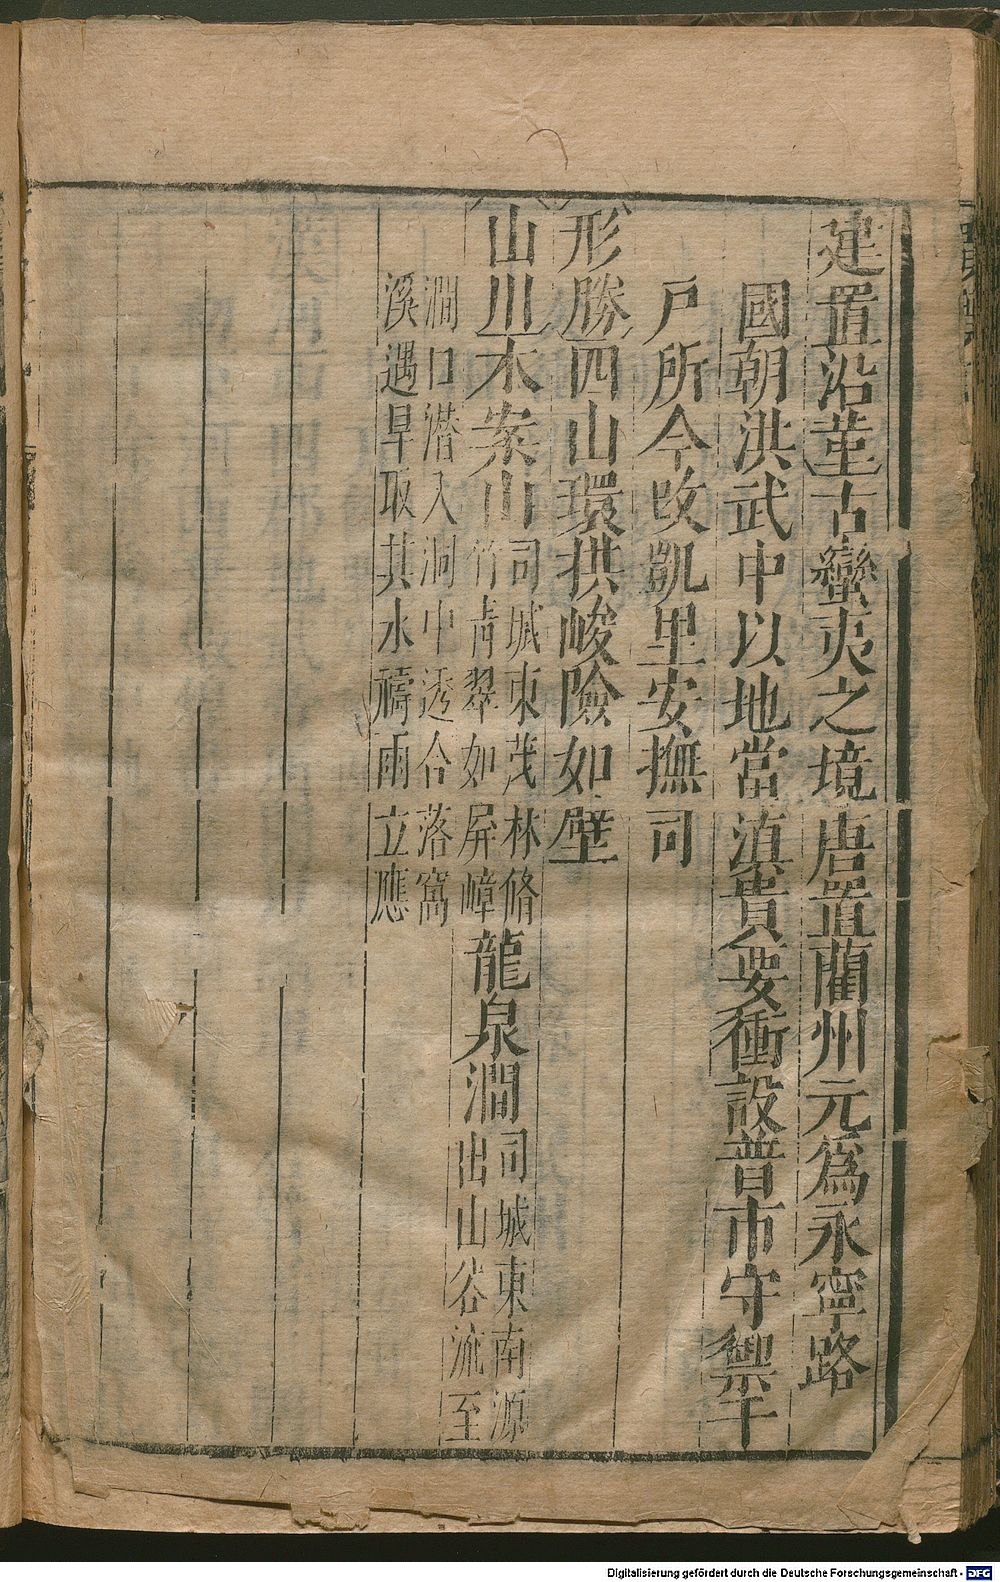 建置沿革古蠻夷之境唐置藺州元爲永寧路
國朝洪武中以地當滇貴要衝設普市守禦千
戸所今改凱里安撫司
形勝四山環拱峻險如壁
山川木案山司城東茂林脩竹青翠如屏嶂龍泉澗司城東南源出山谷流至
澗口潜入洞中透合落窩溪遇旱取其水禱雨立應
Digitalisierung gefördert durch die Deutsche Forschungsgemeinschaft - DFG